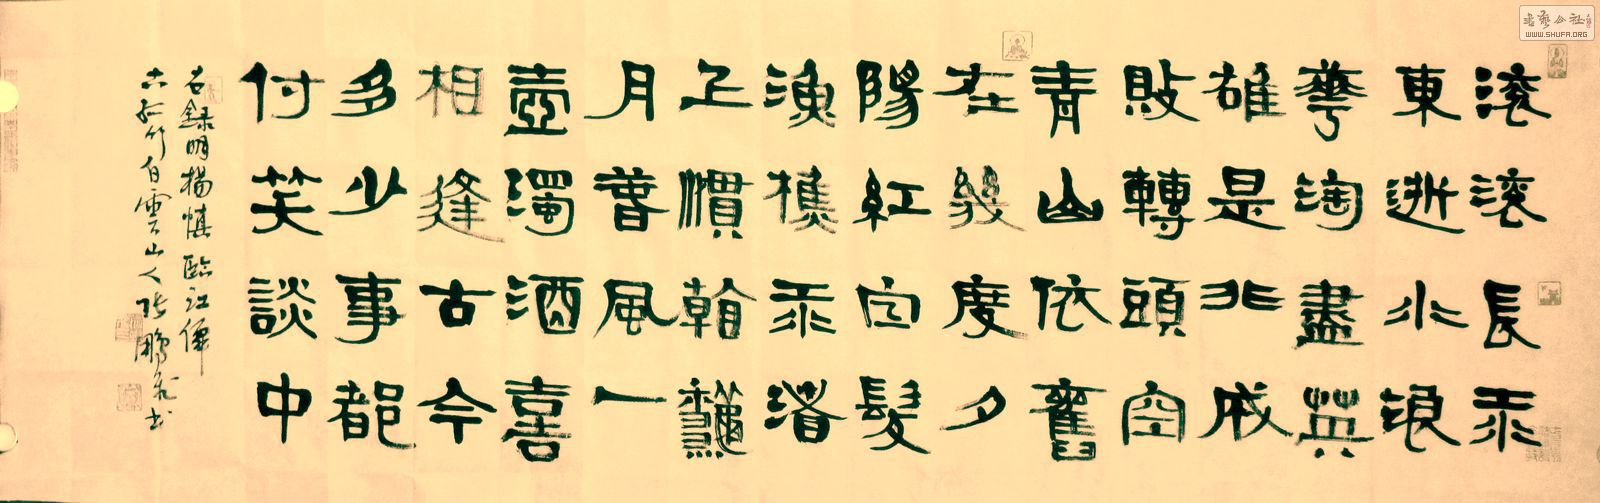 滚滚長江
東逝水浪
華淘盡英
雄是非成
敗轉頭空
青山依舊
在幾度夕
陽紅白髮
漁樵江渚
上慣看龝
月春風一
壺濁酒喜
相逢古今
多少事都
付笑談中
右録明楊慎臨江僊
古孤竹白雲山人張鵬飛書
書藝公社
WWW.SHUFA.ORG